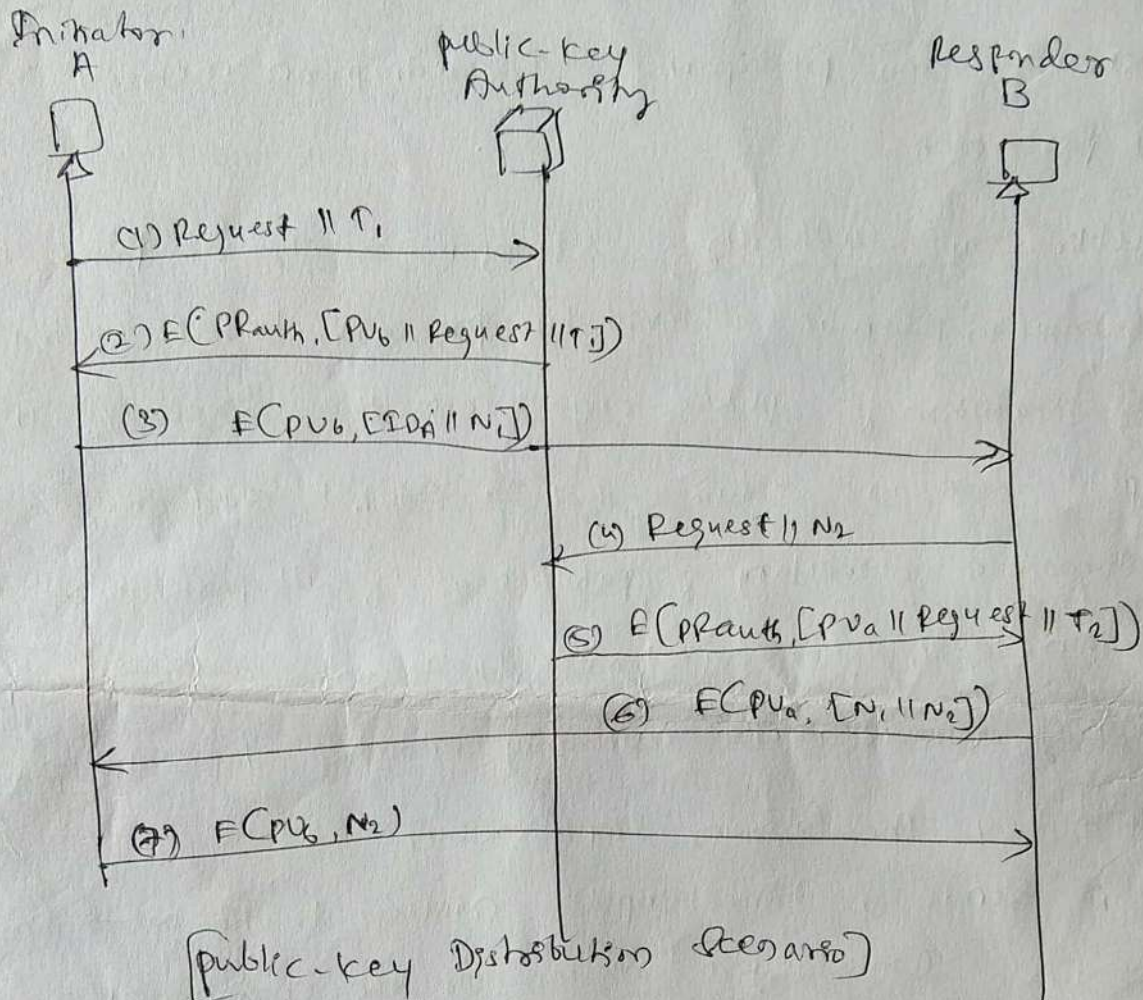 Initiator.
A
public-key
Authority
Responder
B
(1) Request || T1
(2) E(PRauth, [PUb || Request || T1])
(3) E(PUb, [IDA || N1])
(4) Request || N2
(5) E(PRauth, [PUa || Request || T2])
(6) E(PUa, [N1 || N2])
(7) E(PUb, N2)
[public-key Distribution Scenario]